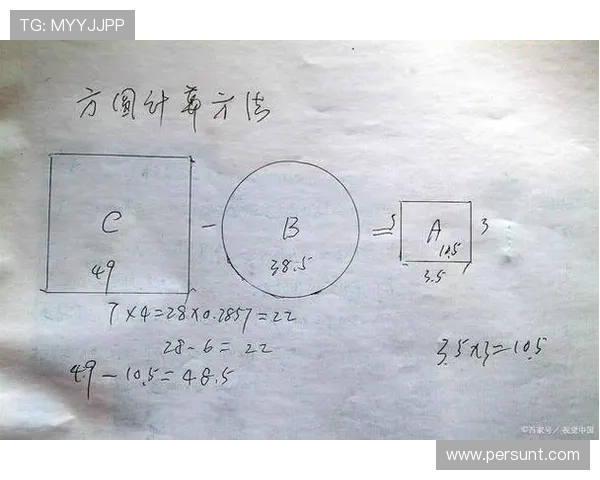 TG: MYYJJPP
方圆计算方法
C
49
-
B
38.5
=
A
10.5
3
3.5
7×4=28×0.2857=22
28-6=22
49-10.5=48.5
3.5×3=10.5
©百家号/视觉中国
www.persunt.com